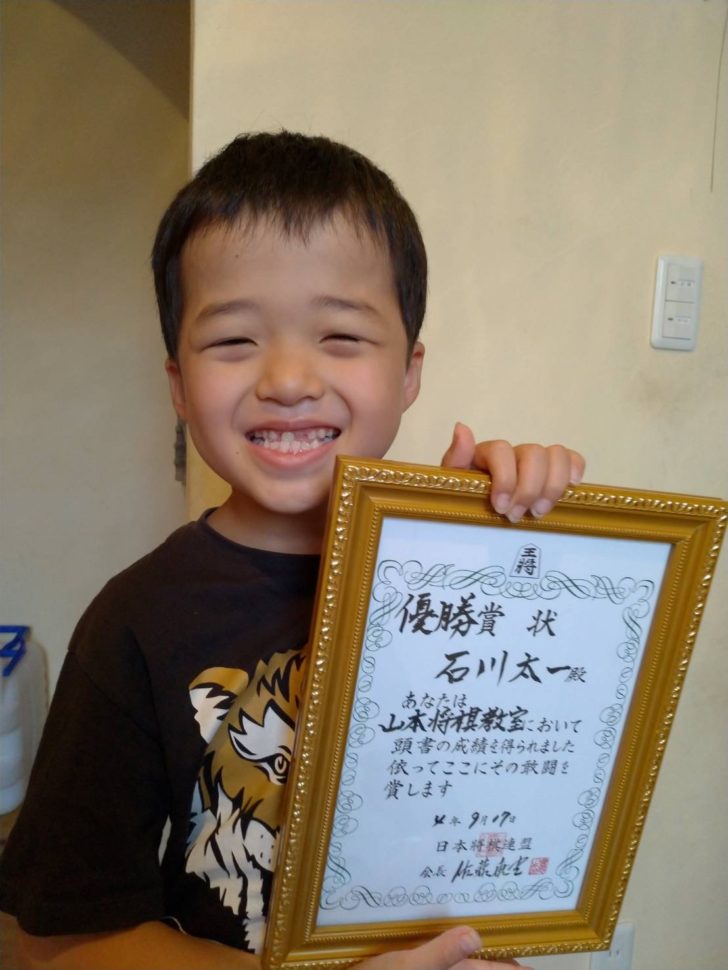 王将
優勝賞状
石川太一殿
あなたは
山本将棋教室において
頭書の成績を得られました
依ってここにその敢闘を
賞します
年9月17日
日本将棋連盟
会長 佐藤康光